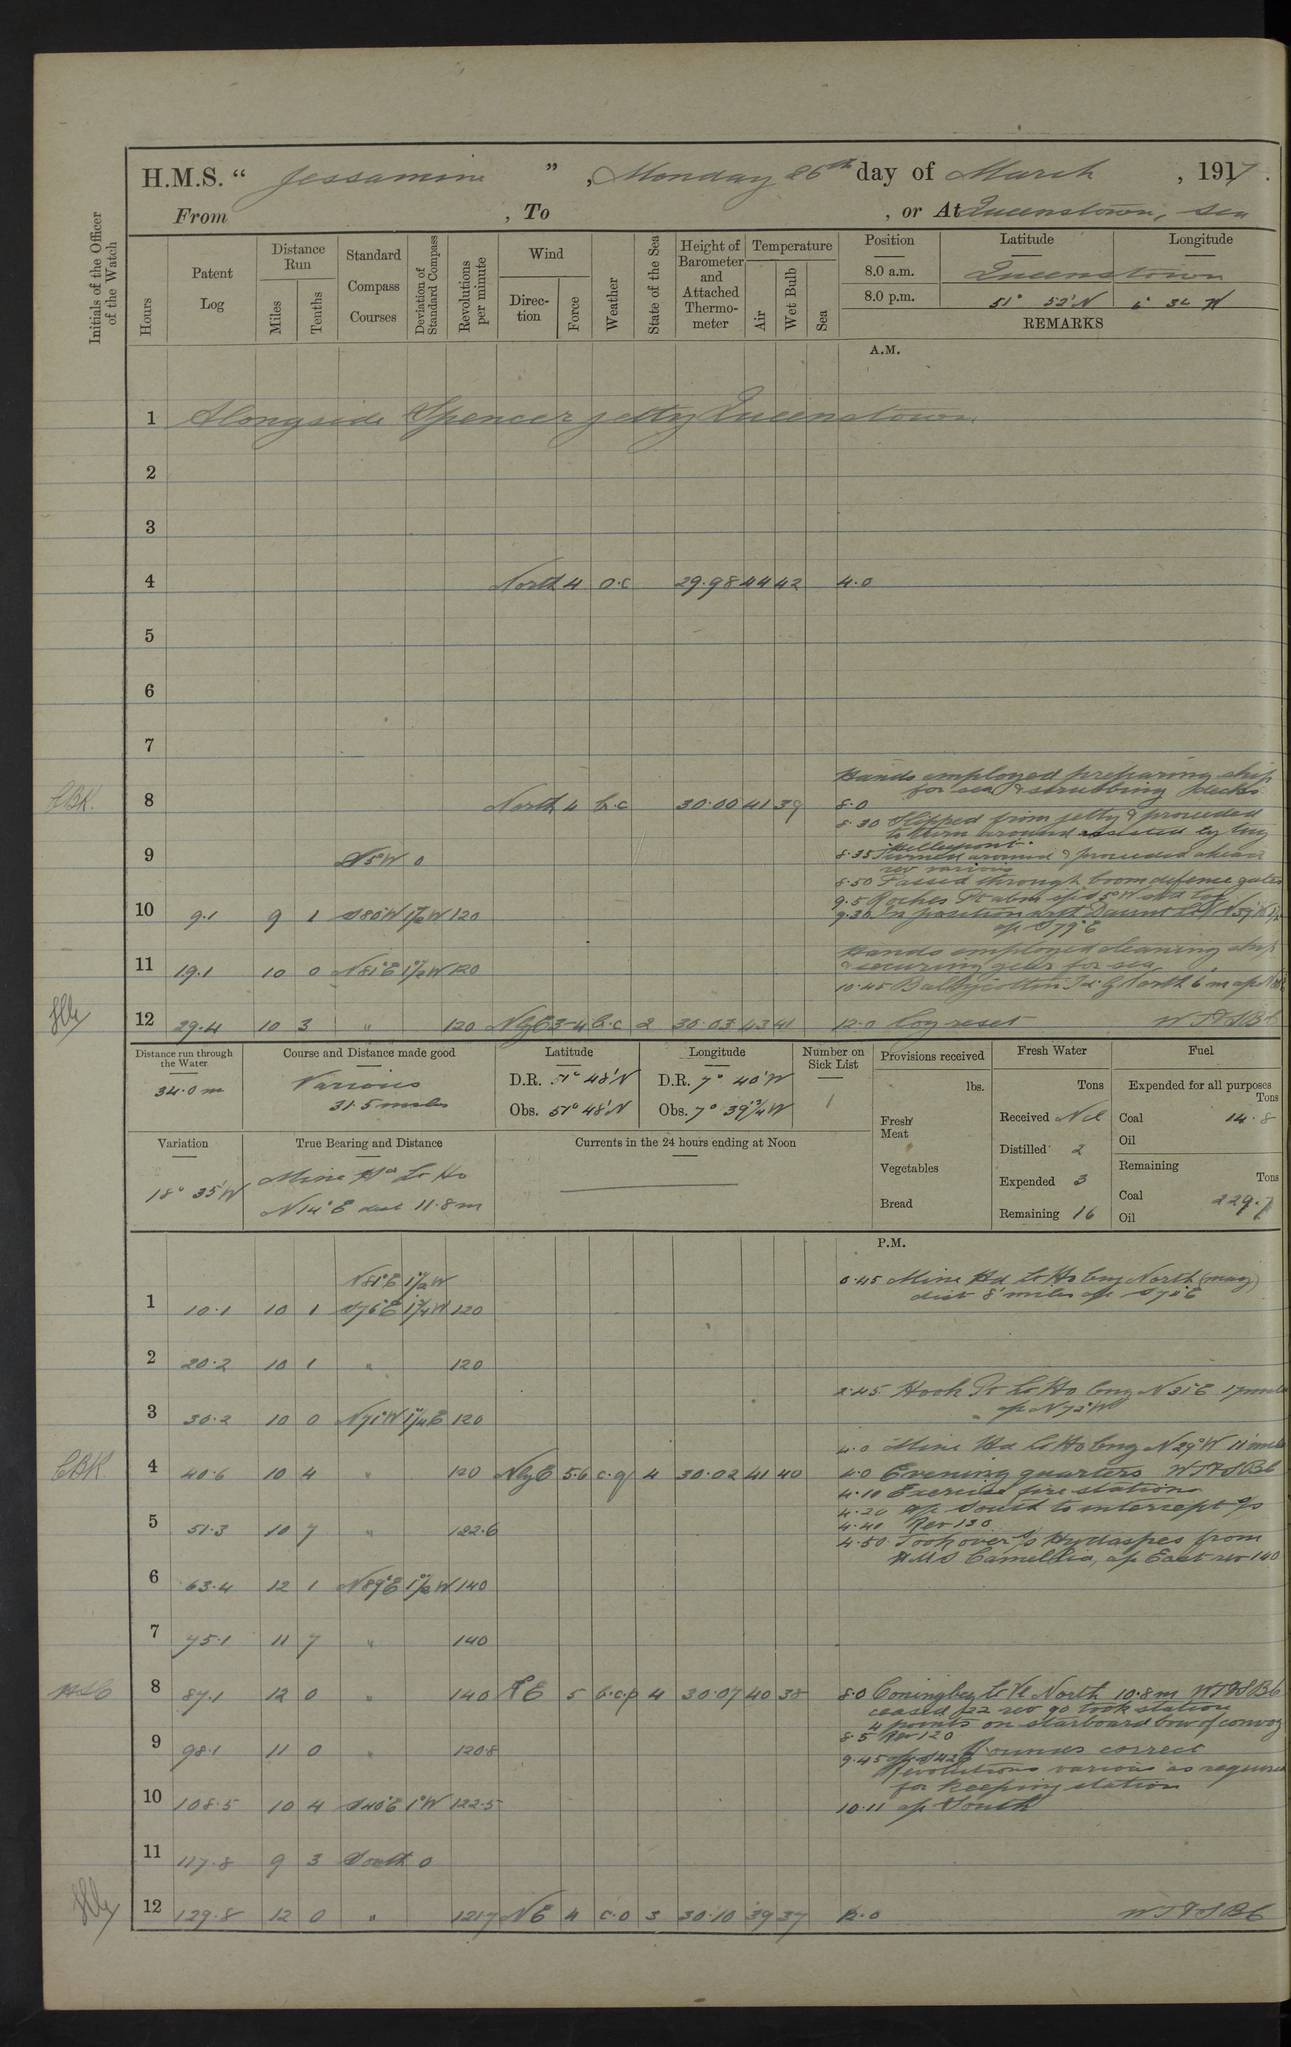 H.M.S. " Jessamine ", Monday 26th day of March, 1917.
From , To , or At Queenstown, sea
Initials of the Officer of the Watch
Hours
Patent Log
Distance Run
Miles
Tenths
Standard Compass Courses
Deviation of Standard Compass
Revolutions per minute
Wind
Direction
Force
Weather
State of the Sea
Height of Barometer and Attached Thermometer
Temperature
Air
Wet Bulb
Sea
Position Latitude Longitude
8.0 a.m. Queenstown
8.0 p.m. 51° 52'N 6° 34 W
REMARKS
A.M.
1 Alongside Spencer jetty Queenstown
2
3
4 North 4 o.c 29.98 44 42 4.0
5
6
7
Hands employed preparing ship
for sea & scrubbing decks
8 North 4 b.c 30.00 41 39 8.0
8.30 Slipped from jetty & proceeded
to turn around assisted by tug
Hellespont.
9 S5°W 0
8.35 Turned around & proceeded ahead
rev various
8.50 Passed through boom defence gates
9.5 Roches Pt abm
10 9.1 9 1 S80°W 1½°W 120
9.30 In position
a/c S79°E
Hands employed cleaning ship
11 19.1 10 0 N81°E 1½°W 120
& securing gear for sea
10.45 Ballycotton Id North 6 m
12 29.4 10 3 " 120 NbyE 3-4 b.c 2 30.03 43 41 12.0 Log reset
Distance run through the Water
34.0 m
Course and Distance made good
Various
31.5 miles
Latitude
D.R. 51° 48'N
Obs. 51° 48'N
Longitude
D.R. 7° 40'W
Obs. 7° 39¾'W
Number on Sick List
1
Provisions received
lbs.
Fresh Meat
Vegetables
Bread
Fresh Water
Tons
Received Nil
Distilled 2
Expended 3
Remaining 16
Fuel
Expended for all purposes
Tons
Coal 14.8
Oil
Remaining
Tons
Coal 229.7
Oil
Variation
18° 35'W
True Bearing and Distance
Mine Hd Lt Ho
N14°E dist 11.8 m
Currents in the 24 hours ending at Noon
P.M.
N81°E 1½°W
0.45 Mine Hd Lt Ho brg North (mag)
dist 8 miles
1 10.1 10 1 S76°E 1¾°W 120
2 20.2 10 1 " 120
2.45 Hook Pt Lt Ho brg N31°E 17 miles
3 30.2 10 0 N71°W 1¼°E 120
a/c N72°W
4.0 Mine Hd Lt Ho brg N29°W 11 miles
4 40.6 10 4 " 120 NbyE 5.6 c.q 4 30.02 41 40 4.0 Evening quarters
4.10 Exercise fire stations
4.20 a/c South to intercept s/s
4.40 Rev 130
5 51.3 10 7 " 122.6
4.50 Took over s/s Hydaspes from
HMS Camellia, a/c East rev 140
6 63.4 12 1 N89°E 1½°W 140
7 75.1 11 7 " 140
8 87.1 12 0 " 140 NE 5 b.c.p 4 30.07 40 38 8.0 Coningbeg Lt Ve North 10.8 m
rev 90 took station
4 points on starboard bow of convoy
8.5 Rev 120
9 98.1 11 0 " 120.8
Rounds correct
9.45
Revolutions various as required
for keeping station
10 108.5 10 4 S40°E 1°W 122.5
10.11 a/c South
11 117.8 9 3 South 0
12 129.8 12 0 " 121.7 NE 4 c.o 3 30.10 39 37 12.0